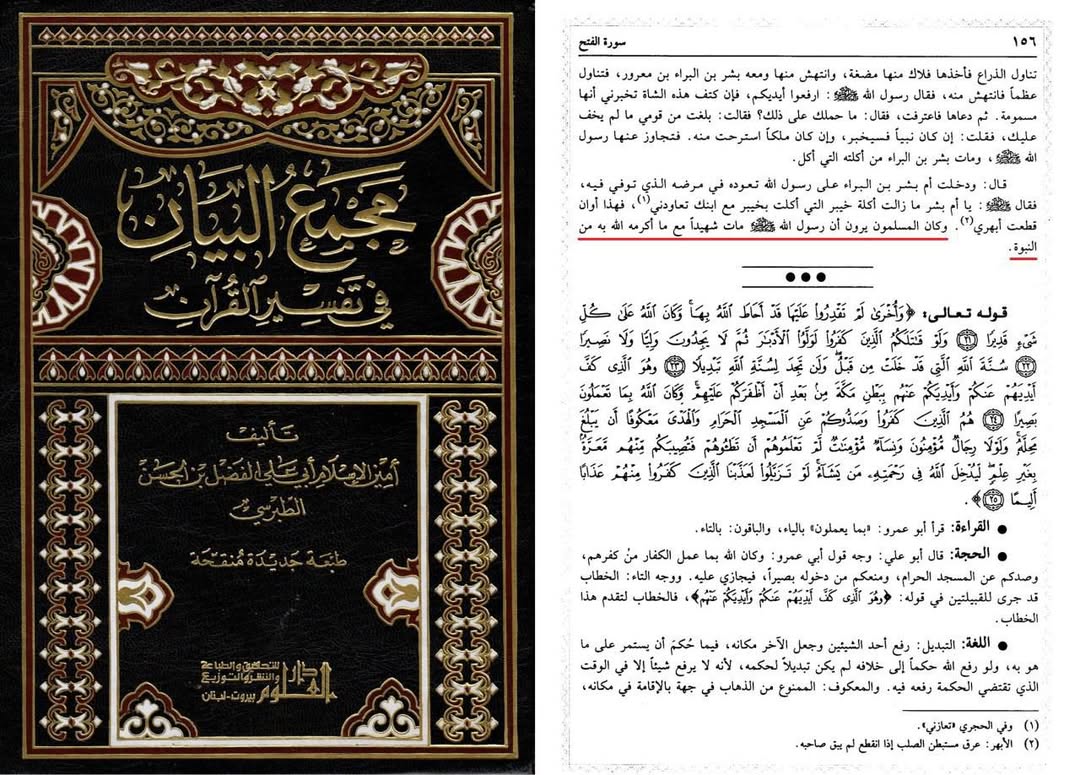 مجمع البيان
في تفسير القرآن
تأليف
أمين الإسلام أبي علي الفضل بن الحسن
الطبرسي
طبعة جديدة منقحة
دار العلوم
للتحقيق والطباعة
والنشر والتوزيع
بيروت - لبنان
١٥٦
سورة الفتح
تناول الذراع فأخذها فلاك منها مضغة، وانتهش منها ومعه بشر بن البراء بن معرور، فتناول
عظماً فانتهش منه، فقال رسول الله ﷺ : ارفعوا أيديكم، فإن كتف هذه الشاة تخبرني أنها
مسمومة. ثم دعاها فاعترفت، فقال: ما حملك على ذلك؟ فقالت: بلغت من قومي ما لم يخف
عليك، فقلت: إن كان نبياً فسيخبر، وإن كان ملكاً استرحت منه. فتجاوز عنها رسول
الله ﷺ، ومات بشر بن البراء من أكلته التي أكل.
قال: ودخلت أم بشر بن البراء على رسول الله تعوده في مرضه الذي توفي فيه،
فقال ﷺ : يا أم بشر ما زالت أكلة خيبر التي أكلت بخيبر مع ابنك تعاودني(١)، فهذا أوان
قطعت أبهري(٢). وكان المسلمون يرون أن رسول الله ﷺ مات شهيداً مع ما أكرمه الله به من
النبوة.
قوله تعالى: ﴿وَأُخْرَىٰ لَمْ تَقْدِرُوا عَلَيْهَا قَدْ أَحَاطَ اللَّهُ بِهَا وَكَانَ اللَّهُ عَلَىٰ كُلِّ
شَيْءٍ قَدِيرًا ﴿٢١﴾ وَلَوْ قَاتَلَكُمُ الَّذِينَ كَفَرُوا لَوَلَّوُا الْأَدْبَارَ ثُمَّ لَا يَجِدُونَ وَلِيًّا وَلَا نَصِيرًا
﴿٢٢﴾ سُنَّةَ اللَّهِ الَّتِي قَدْ خَلَتْ مِن قَبْلُ وَلَن تَجِدَ لِسُنَّةِ اللَّهِ تَبْدِيلًا ﴿٢٣﴾ وَهُوَ الَّذِي كَفَّ
أَيْدِيَهُمْ عَنكُمْ وَأَيْدِيَكُمْ عَنْهُم بِبَطْنِ مَكَّةَ مِن بَعْدِ أَنْ أَظْفَرَكُمْ عَلَيْهِمْ وَكَانَ اللَّهُ بِمَا تَعْمَلُونَ
بَصِيرًا ﴿٢٤﴾ هُمُ الَّذِينَ كَفَرُوا وَصَدُّوكُمْ عَنِ الْمَسْجِدِ الْحَرَامِ وَالْهَدْيَ مَعْكُوفًا أَن يَبْلُغَ
مَحِلَّهُ وَلَوْلَا رِجَالٌ مُّؤْمِنُونَ وَنِسَاءٌ مُّؤْمِنَاتٌ لَّمْ تَعْلَمُوهُمْ أَن تَطَئُوهُمْ فَتُصِيبَكُم مِّنْهُم مَّعَرَّةٌ
بِغَيْرِ عِلْمٍ لِّيُدْخِلَ اللَّهُ فِي رَحْمَتِهِ مَن يَشَاءُ لَوْ تَزَيَّلُوا لَعَذَّبْنَا الَّذِينَ كَفَرُوا مِنْهُمْ عَذَابًا
أَلِيمًا ﴿٢٥﴾﴾.
● القراءة: قرأ أبو عمرو: «بما يعملون» بالياء، والباقون: بالتاء.
● الحجة: قال أبو علي: وجه قول أبي عمرو: وكان الله بما عمل الكفار من كفرهم،
وصدكم عن المسجد الحرام، ومنعكم من دخوله بصيراً، فيجازي عليه. ووجه التاء: الخطاب
قد جرى للقبيلتين في قوله: ﴿وَهُوَ الَّذِي كَفَّ أَيْدِيَهُمْ عَنكُمْ وَأَيْدِيَكُمْ عَنْهُم﴾، فالخطاب لتقدم هذا
الخطاب.
● اللغة: التبديل: رفع أحد الشيئين وجعل الآخر مكانه، فيما حُكمَ أن يستمر على ما
هو به، ولو رفع الله حكماً إلى خلافه لم يكن تبديلاً لحكمه، لأنه لا يرفع شيئاً إلا في الوقت
الذي تقتضي الحكمة رفعه فيه. والمعكوف: الممنوع من الذهاب في جهة بالإقامة في مكانه،
(١) وفي الحجري «تعازني».
(٢) الأبهر: عرق مستبطن الصلب إذا انقطع لم يبق صاحبه.